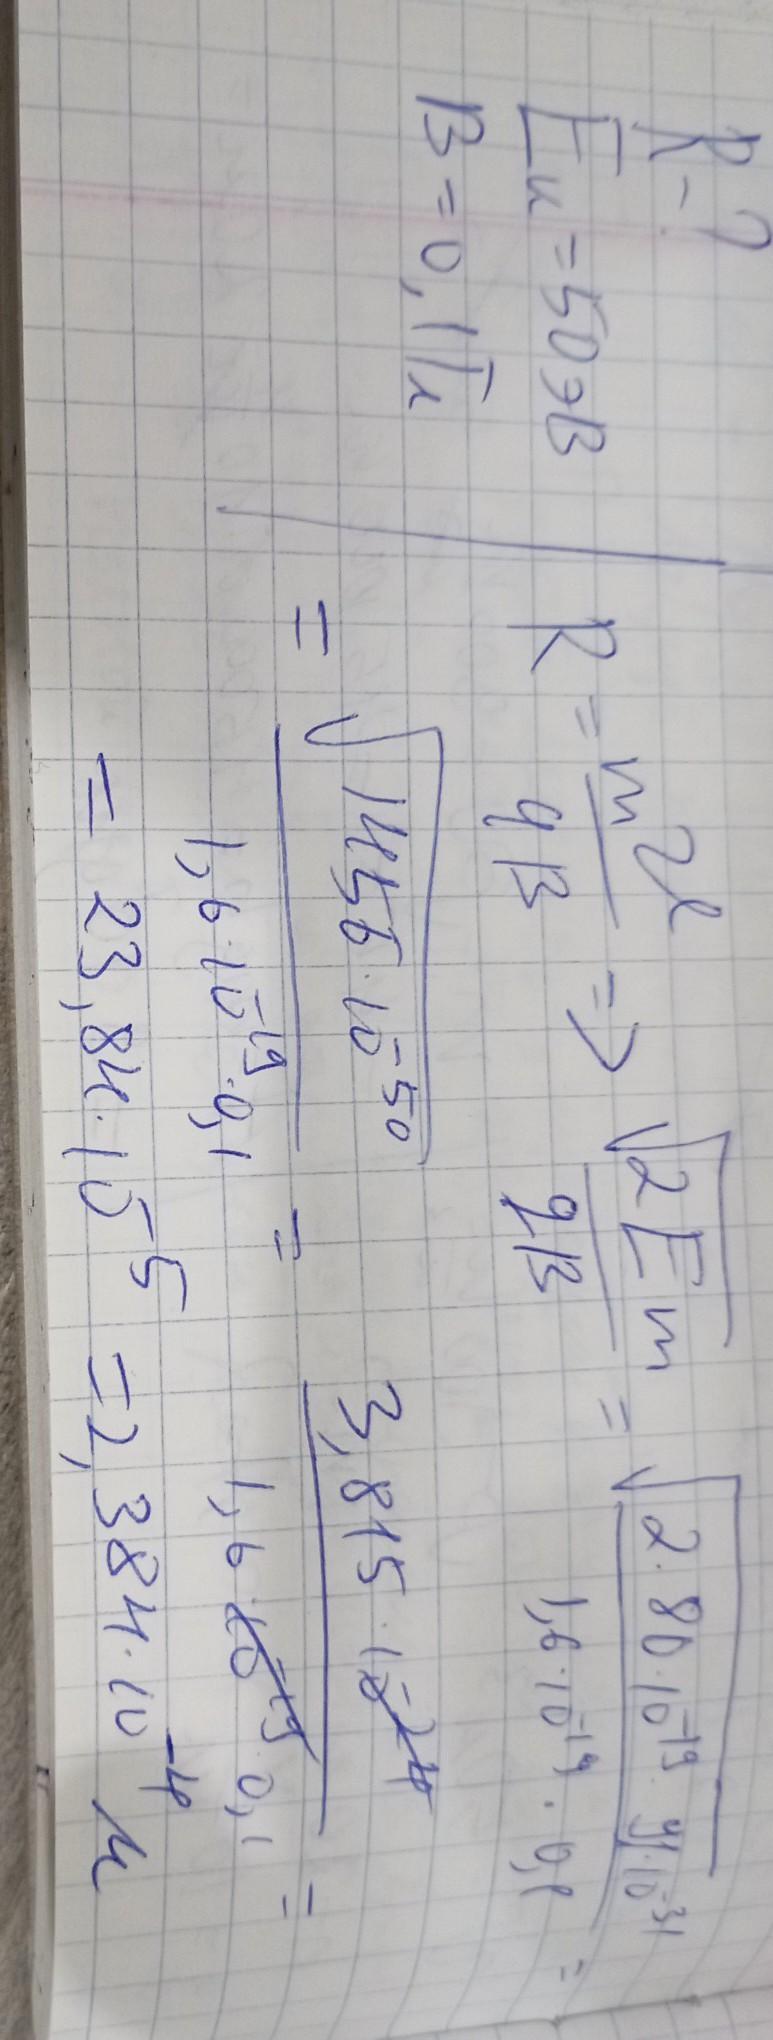 R-?
Eк = 50эВ
B = 0,1 Тл
R = mυ/qB => √(2Em)/qB = √(2·80·10^-19·91·10^-31)/(1,6·10^-19·0,1) =
= √(1456·10^-50)/(1,6·10^-19·0,1) = 3,815·10^-24/(1,6·10^-19·0,1) =
= 23,84·10^-5 = 2,384·10^-4 м